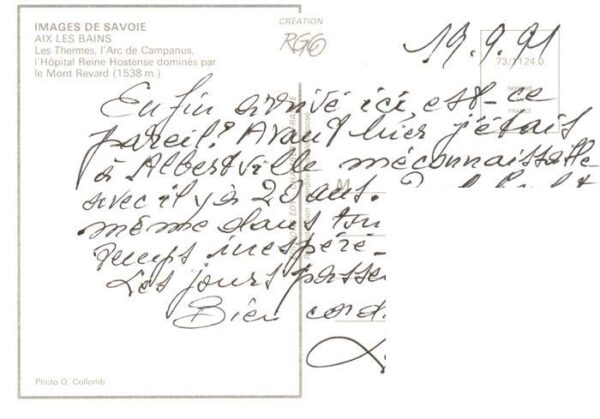 IMAGES DE SAVOIE
AIX LES BAINS
Les Thermes, l'Arc de Campanus,
l'Hôpital Reine Hostense dominés par
le Mont Revard (1538 m.)
CRÉATION
RGG
19.9.91
73/1124.0
IMPRIMÉ
FRANCE
Enfin arrivé ici, est-ce
pareil? Avant hier j'étais
à Albertville méconnaissable
avec il y à 20 ans.
même dans ton
temps inespéré-
Les jours passe
Bien cord
M
Photo O. Collomb